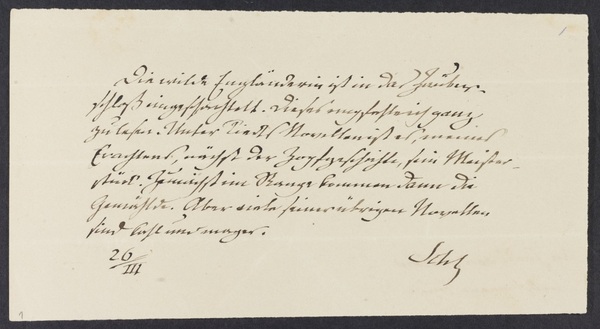 Die wilde Engländerin ist in das Zauber-
schloß eingeschachtelt. Dieses empfehle ich ganz
zu lesen. Unter Tiecks Novellen ist es, meines
Erachtens, nächst der Zopfgeschichte, sein Meister-
stück. Zunächst im Range kommen dann die
Gemählde. Aber viele seiner übrigen Novellen
sind kahl und mager.
26/III
Schl
1